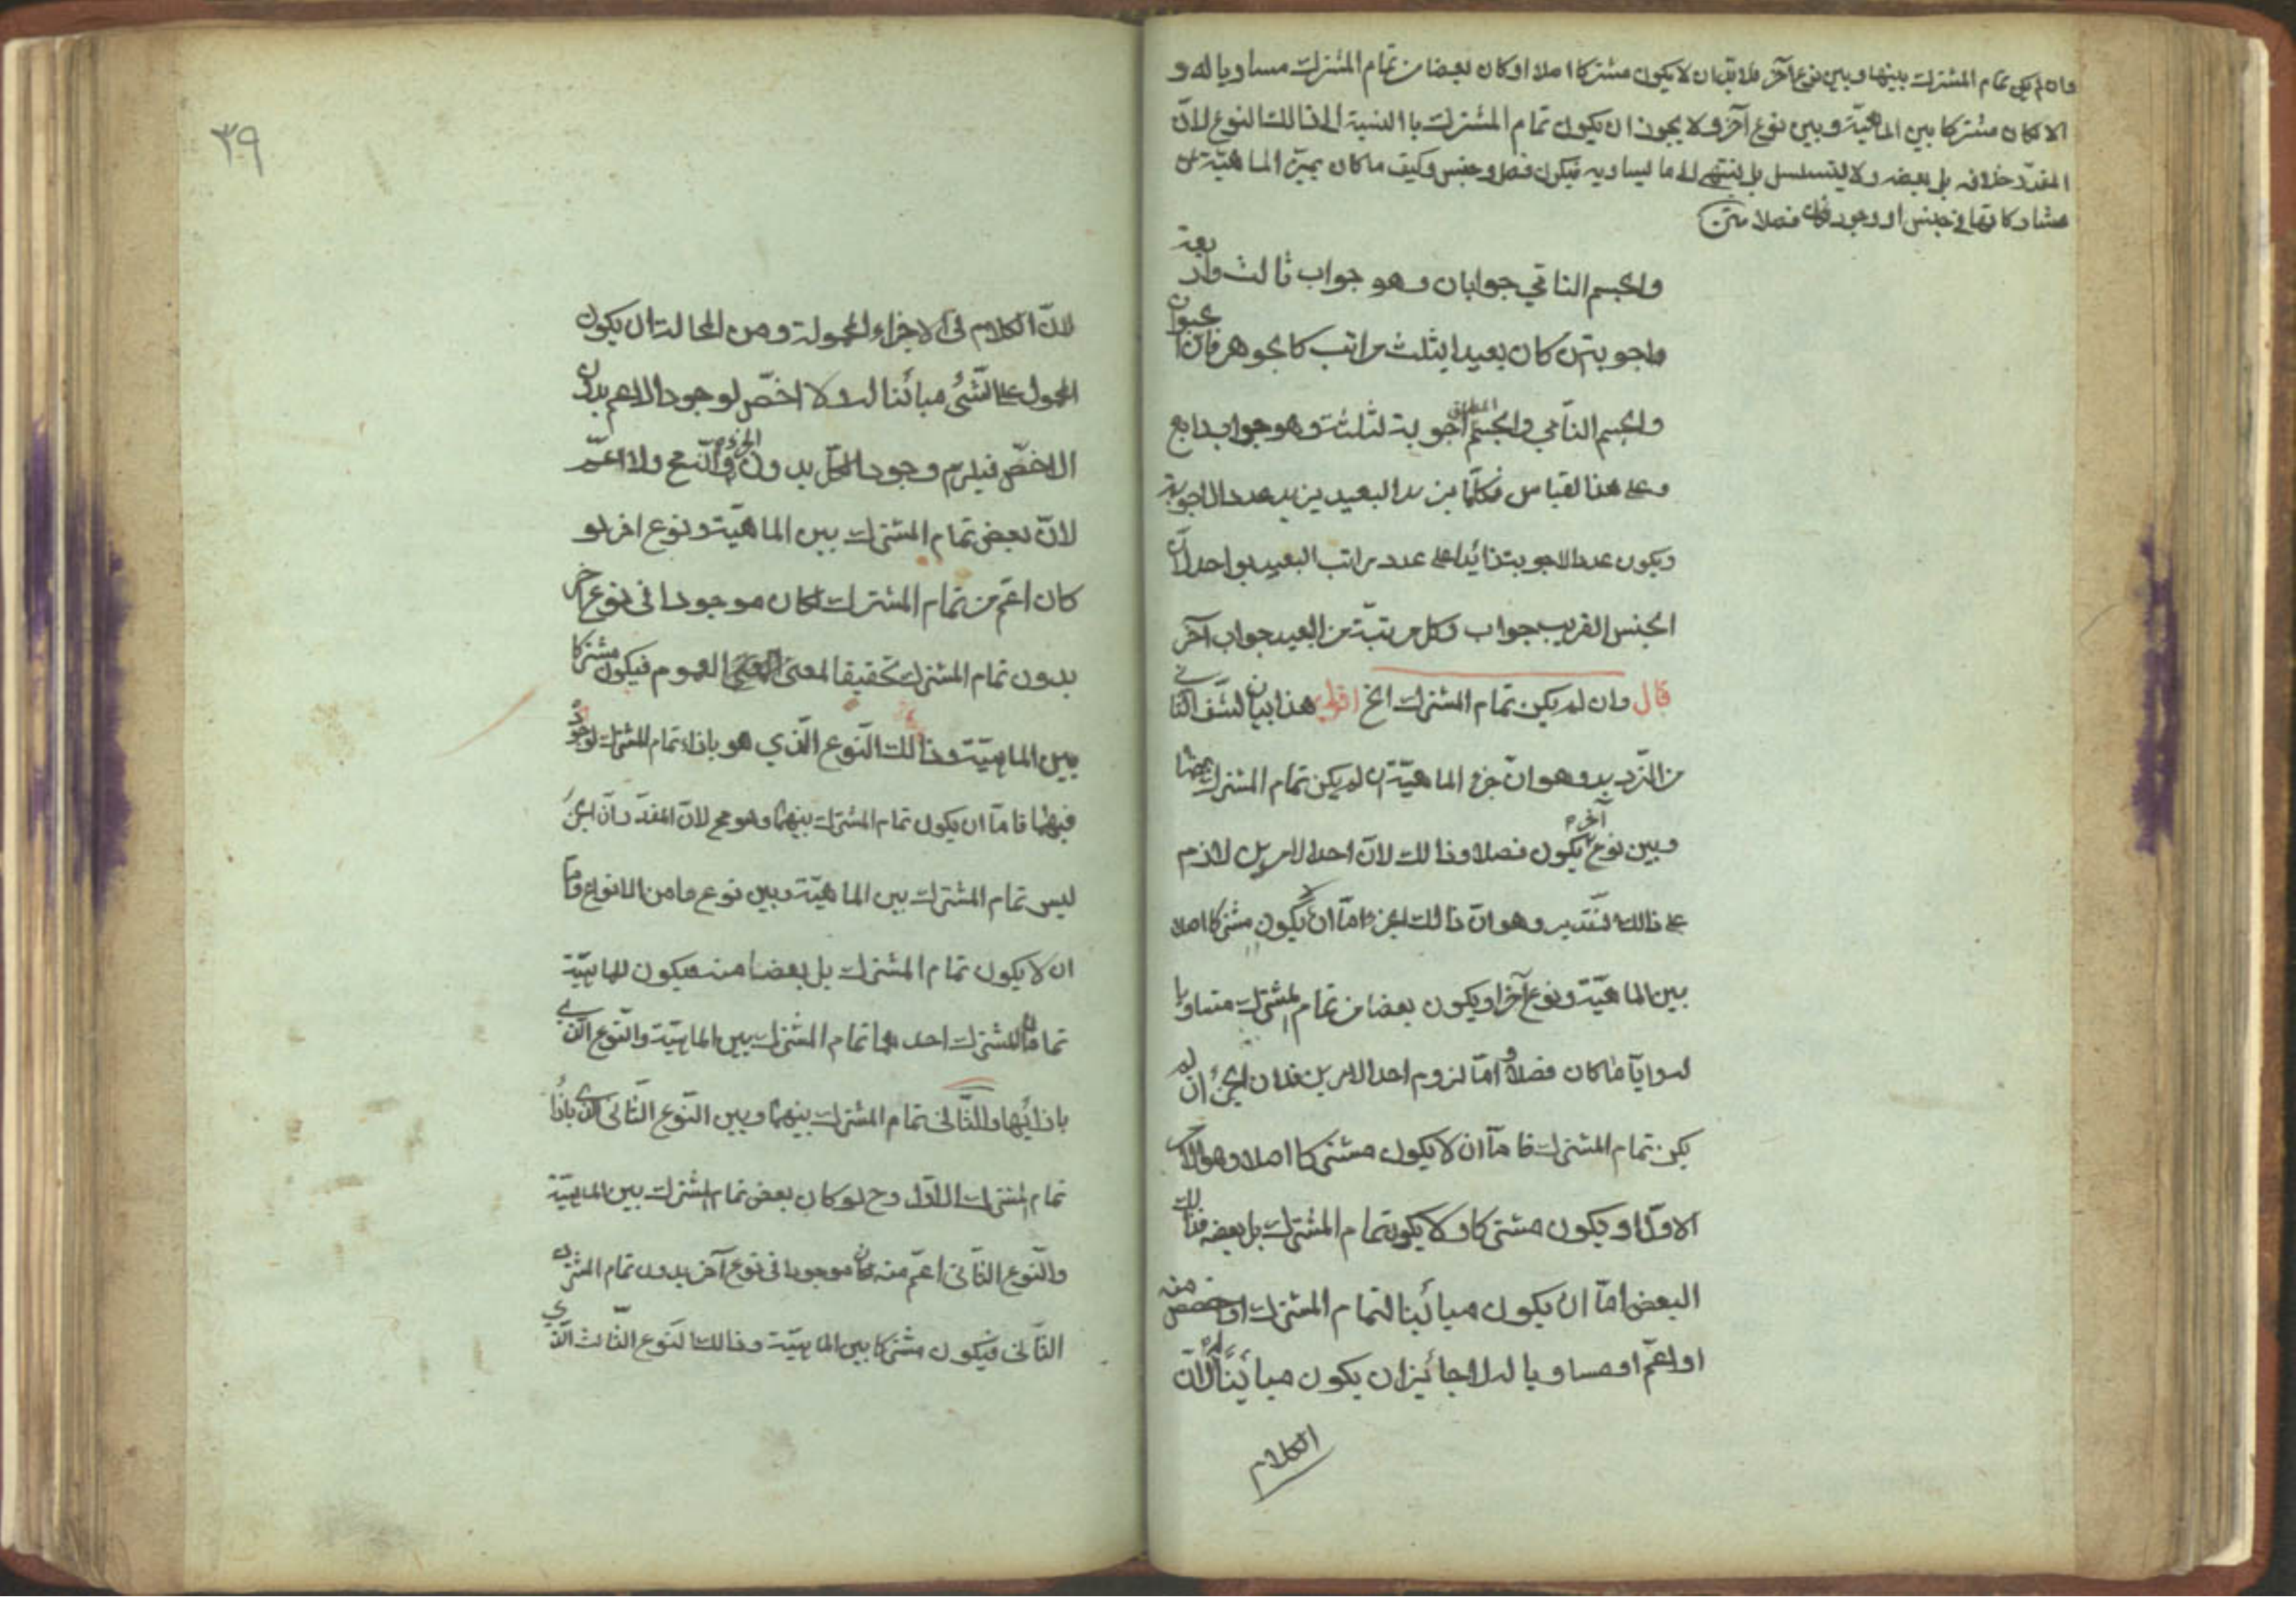 وان لم يكن تمام المشترك بينها وبين نوع آخر فلا بد ان لا يكون مشتركا اصلا او كان بعضا من تمام المشترك مساويا له و
الا لكان مشتركا بين الماهيّة وبين نوع آخر ولا يجوز ان يكون تمام المشترك باالنسبة الى ذالك النوع لانّ
المقدّر خلافه بل بعضه ولا يتسلسل بل ينتهى الى ما يساويه فيكون فصل جنس وكيف ما كان يميّز الماهيّة عن
مشاركاتها فى جنس او وجود فكان فصلا متن
والجسم النامي جوابان وهو جواب ثالث واربعة
واجوبة ان كان بعيدا بثلث مراتب كالجوهر فان الحيوان
والجسم النّامي والجسم المطلق اجوبة ثلثة وهو جواب رابع
وعلى هذا القياس فكلّما يزيد البعيد يزيد عدد الاجوبة
ويكون عدد الاجوبة زائدا على عدد مراتب البعيد بواحد لانّ
الجنس القريب جواب وكل مرتبة من البعيد جواب آخر
قال وان لم يكن تمام المشترك الخ اقول هذا بيان لشقّ الثاني
من التّرديد وهو انّ جزء الماهيّة ان لم يكن تمام المشترك بينها
وبين نوع آخر يكون فصلا وذالك لانّ احد الامرين لازم
على ذالك التّقدير وهو انّ ذالك الجزء امّا ان لا يكون مشتركا اصلا
بين الماهيّة ونوع آخر او يكون بعضا من تمام المشترك مساويا
له وايّا ما كان فصلا وامّا لزوم احد الامرين فلان الجزء ان لم
يكن تمام المشترك فامّا ان لا يكون مشتركا اصلا وهو الامر
الاوّل او يكون مشتركا ولا يكون تمام المشترك بل بعضه فذالك
البعض امّا ان يكون مبائينا لتمام المشترك او اخص منه
او اعمّ او مساويا له لا جائيز ان يكون مبائينًا له لانّ
الكلام
٣٩
لانّ الكلام فى الاجزاء المحمولة ومن المحالة ان يكون
المحمول على الشّئ مبائنا له ولا اخصّ لوجود الاعم بدون
الاخصّ فيلزم وجود الكلّ بدون الجزء وانّه مح ولا اعمّ
لانّ بعض تمام المشترك بين الماهيّة ونوع اخر لو
كان اعمّ من تمام المشترك لكان موجودا فى نوع آخر
بدون تمام المشترك تحقيقا لمعنى العموم فيكون مشتركا
بين الماهيّة وذالك النّوع الّذي هو بازاء تمام المشترك لوجوده
فيهما فامّا ان يكون تمام المشترك بينهما وهو مح لانّ المقدّر انّ الجزء
ليس تمام المشترك بين الماهيّة وبين نوع ما من الانواع وامّا
ان لا يكون تمام المشترك بل بعضا منه فيكون للماهيّة
تماما المشترك احدهما تمام المشترك بين الماهيّة والنّوع الّذي
بازائها والثّانى تمام المشترك بينهما وبين النّوع الثّانى الّذى بازاء
تمام المشترك الاوّل وح لو كان بعض تمام المشترك بين الماهيّة
والنّوع الثّانى اعمّ منه كان موجودا فى نوع آخر بدون تمام المشترك
الثّانى فيكون مشتركا بين الماهيّة وذالك النّوع الثّالث الّذي